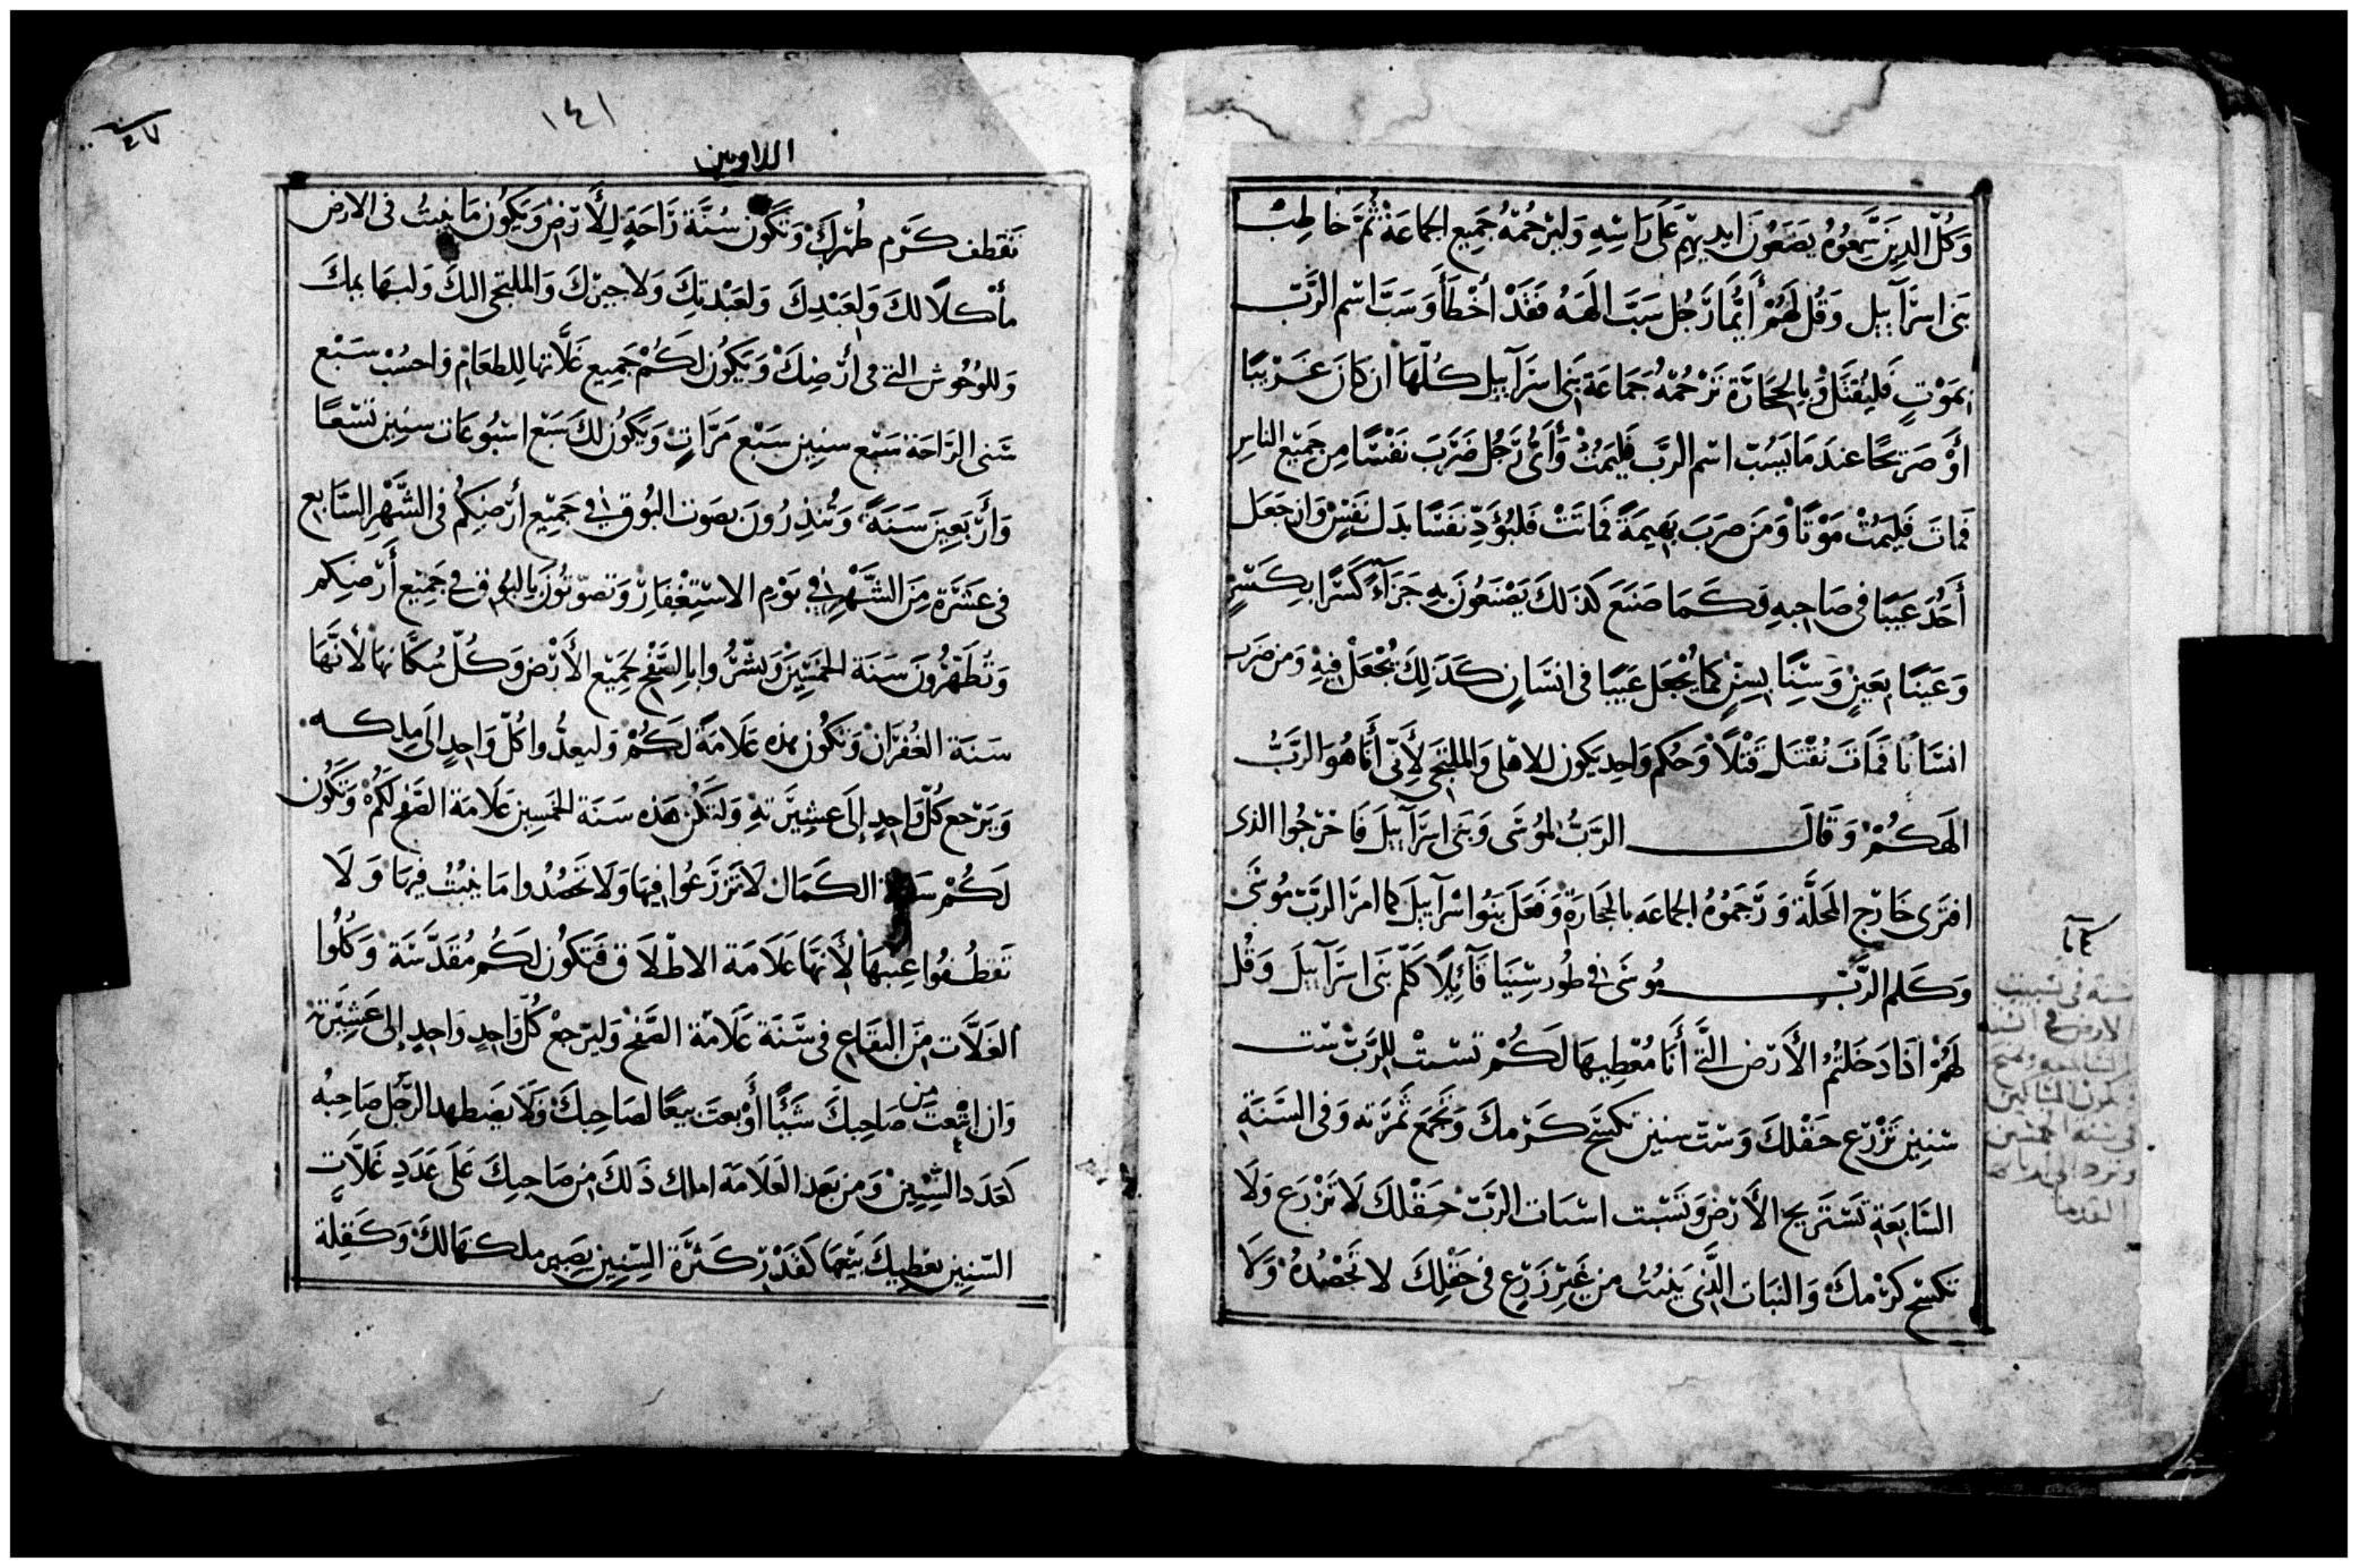 وَكُلّ الدِينَ سَّمِعُوهُ يضَعُونَ ايديهِم عَلَى رَاسِّهِ وَليَرْجُمْهُ جَمِيع الجَماعَة ثُمَّ خاطِبْ
بَنى اسرَّآييل وَقُل لَهُمْ أَيُّمَا رَّجُل سَبَّ الَهَهُ فَقَدْ أخْطَأَ وَسَبَّ اسْم الرَّبّ
بمَوْتٍ فَليُقتَل وَبِالحِجَارَّة تَرْجُمْهُ جَمَاعَة بَنِى اسرَآييل كُلّهَا ان كَانَ غَرْيبًا
أوْ صَرّيحًا عندَ مَا يَسُبّ اسْم الربّ فَليَمُتْ وَأَىُّ رَّجُل ضَرَّبَ نَفْسًّا مِن جَمِيْع الناسِ
فَماتَ فَليَمُتْ مَوْتًا وَمَن ضرَبَ بَهِيمَةً فَماتَتْ فَليُؤَدِّ نَفَسًّا بدَل نَفَسٍْ وَان جَعَل
أَحَدٌ عَيبًا فى صَاحِبهِ فكَمَا صَنَعَ كَذلكَ يَصْنَعُونَ بِهِ جَزَآءً كَسَّرًا بِكَسَّرٍ
وَعَينًا بعَينٍ وَسّنًا بسِنٍّ كَمَا يُجْعَل عَيبًا فى انسَّانٍ كَذَلِكَ يُجْعَلْ فيهِ وَمن ضرَب
انسَانًا فَمَاتَ يُقْتَل قَتْلاً وَحُكم وَاحِد يَكون للاهْلى وَالملتَجى لأَنّى أَنَا هُوَ الرَّبُّ
الهَكُمْ وَقَالَ الرَّبُّ لمُوسَّى وَبَنى اسرَّآييلَ فَاخرّجُوا الذى
افتَرى خَارّج المَحلَّة وَرَّجَمُوهُ الجماعَه بالحِجَارَة وَفَعَلَ بَنُوا اسْرآييلَ كما امرَّ الربّ مُوسَّى
وَكَلم الرَّبّ مُوسَى فى طُور سّينَا قَآئِلًا كَلّم بَنى اسرَّآييلَ وَقُل
لَهُمْ اذَا دَخَلتُمُ الأَرّض التَّى أَنَا مُعْطِيهَا لَكُمْ تسبْتْ للِرَّبّ سْت
سْنِينِ تَزْرَّع حَقْلكَ وَستّ سنين تكسَّح كَرّمكَ وَتَجْمَع ثَمرَّته وَفى السَّنَةِ
السَّابعَةِ تَسْتَريح الأَرّض وَتَسْبت اسْبات الرَّبّ حَقْلكَ لَا تَزْرَع وَلَا
تكسّح كَرْمكَ وَالنبَات الَّذى يَنبُتُ من غَيرّ زَرّع فى حَقْلِكَ لا تَحْصُدهُ وَلَا
سنة فى
الارض فى
اللاويين
١٤١
تَقَطف كَرّم طُهرّكَ وَتَكُون سُنَّة رَّاحَةٍ لِلأَرّض وَيَكُون مَا ينبتُ فى الارض
مأكلًا لكَ وَلعَبْدِكَ وَلعَبْدتِكَ وَلاجيرّكَ وَالملتجى اليكَ وَلبهَايمكَ
وَللوُحُوش التى فى أرّضِكَ وَيَكُون لكُمْ جَمِيع غَلَّاتهَا لِلطعَام وَاحسُبْ سَبْع
سّنى الرَّاحَة سَبْع سنِين سَبْع مَرَّاتٍ وَيَكُون لكَ سَبْع اسْبُوعَات سنِين تسْعًا
وَأَرّبَعِينَ سَنَةً وَتُنذِرُونَ بصَوت البُوق فى جَميْع أرّضِكُم فى الشَّهْر السَّابع
فى عَشَرَة مِنَ الشَّهْر فى يَوْم الاسْتِغْفَارْ وَتصَوّتُونَ بالبُوق فى جَمِيْع أَرّضِكم
وَتُطَهِّرُونَ سَنَة الخمْسِّيْن وَبشّرُّوا بالصَّفْح لجَمِيْع الأَرْض وَكُلّ سُكَّانهَا لأَنَّهَا
سَنَة الغُفرَان وَتَكُون هذه عَلَامَةً لَكُمْ وَليعدُّوا كُلّ وَاحِدٍ الَى مِلكه
وَيَرْجع كُلّ وَاحِدٍ إِلَى عشِيرَّتهِ وَلتَكُن هَذه سَنَة الخَمسِين عَلَامَة الصَّفح لَكُمْ وَتَكُون
لَكُمْ سَنة الكَمَال لَا تَزْرَّعُوا فِيهَا وَلَا تَحصُدُوا مَا يَنبُتُ فِيهَا وَلَا
تَقطُفُوا عِنبهَا لأَنهَا عَلَامَة الاطْلاق فَتكُون لكُم مُقَدَّسَّة وَكُلُوا
الغَلَّات مِنَ البقَاعِ فى سَّنَة عَلَامَة الصَّفح وَليرّجع كُلّ وَاحِدٍ وَاحِدٍ إلى عَشِيَّرَتهِ
وَان ابتَعتَ من صَاحِبكَ شَيئًا أَوْ بعتَ بيعًا لصَاحِبكَ وَلَا يضطهد الرَّجُل صَاحِبهُ
كَعَدَد السِّنِين وَمن بَعد العَلَامَة املك ذَلكَ مِن صَاحِبكَ عَلَى عَدَدِ غَلَّاتٍ
السّنِين يعْطِيكَ بَيْعهَا كَقَدْر كَثرَّة السِّنِين يَصِير ملكهَا لكَ وَكَقِلة